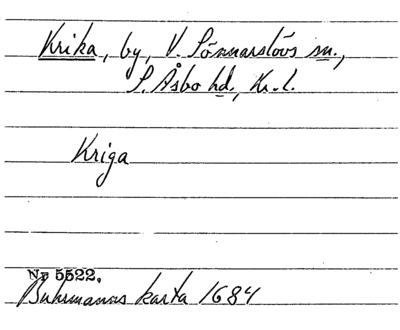 Krika, by, V. Sönnarslövs sn.,
S. Åsbo hd., Kr. l.
Kriga
Nr 5522.
Buhrmanns karta 1684